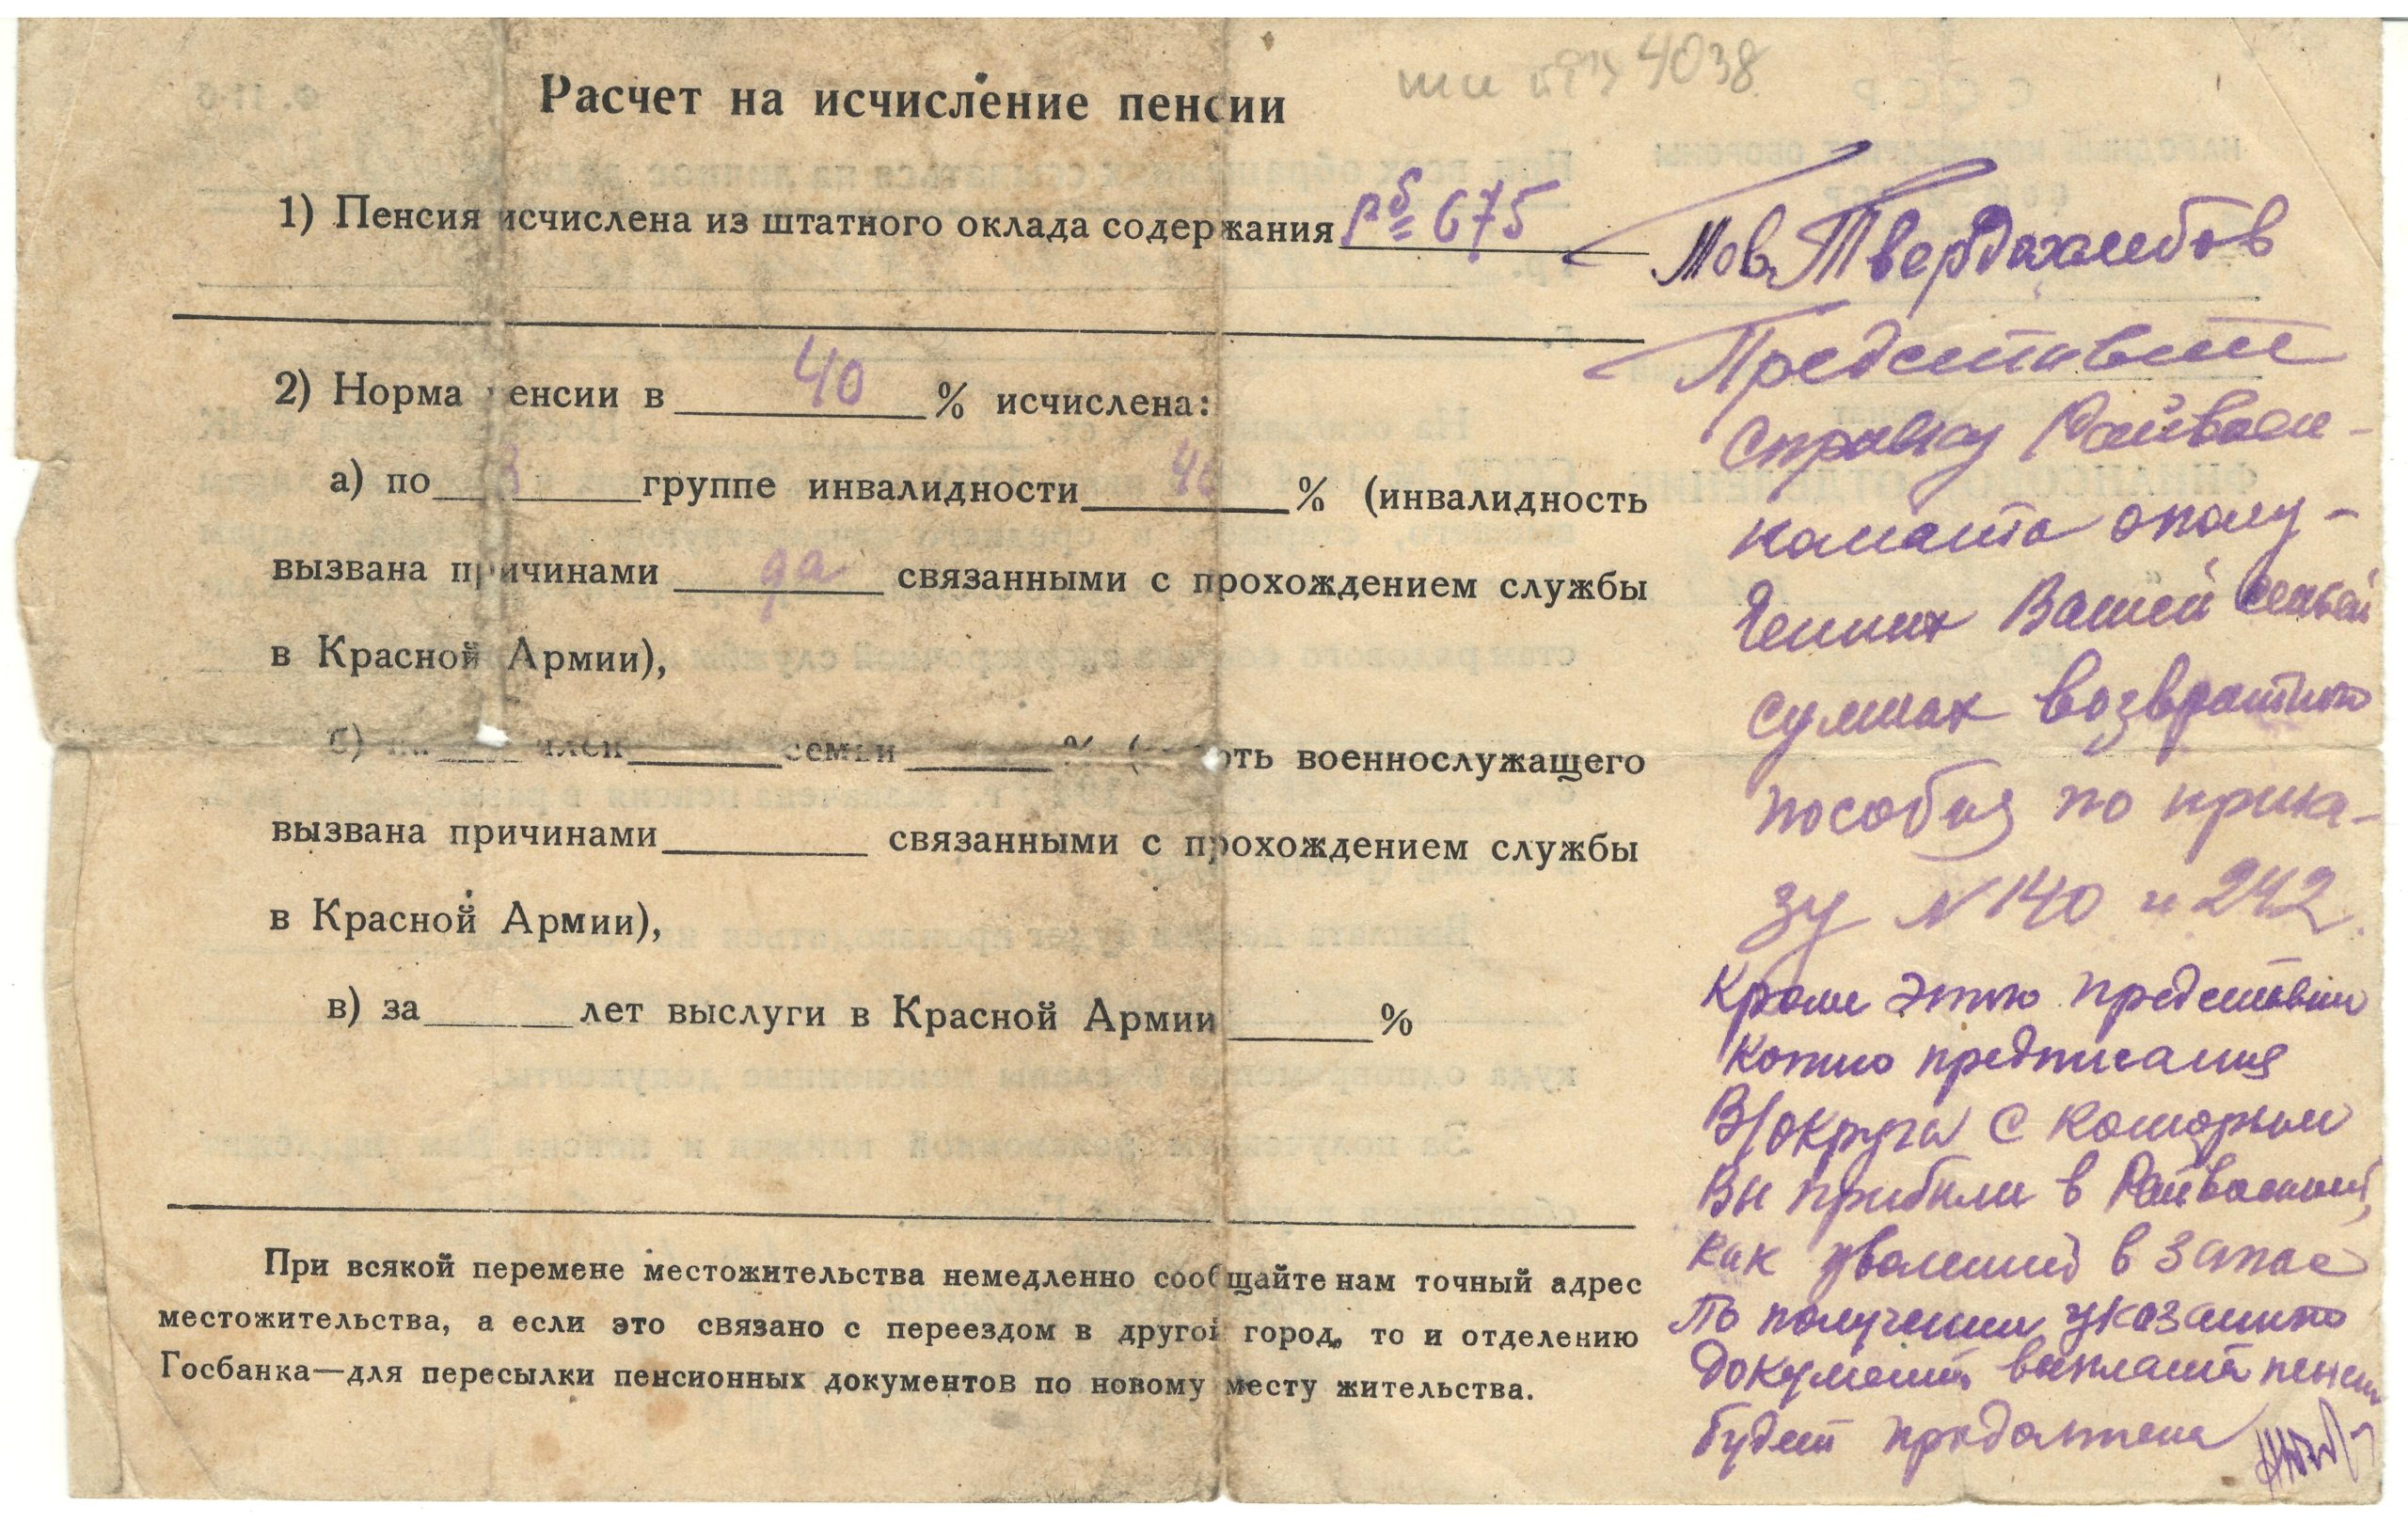 4038
Расчет на исчисление пенсии
1) Пенсия исчислена из штатного оклада содержания рб 675
2) Норма пенсии в 40 % исчислена:
а) по 3 группе инвалидности 40 % (инвалидность
вызвана причинами да связанными с прохождением службы
в Красной Армии),
б) член семьи % (смерть военнослужащего
вызвана причинами связанными с прохождением службы
в Красной Армии),
в) за лет выслуги в Красной Армии %
При всякой перемене местожительства немедленно сообщайте нам точный адрес
местожительства, а если это связано с переездом в другой город, то и отделению
Госбанка—для пересылки пенсионных документов по новому месту жительства.
Тов. Твердохлебов
Представьте
справку Райвоен-
комата о полу-
ченных Вашей семьей
суммах возвратного
пособия по прика-
зу N 140 и 242.
Кроме этого представьте
копию предписания
В/округа с которым
Вы прибыли в Райвоенкомат,
как уволенный в запас
По получении указанного
документа выплата пенсии
будет продолжена